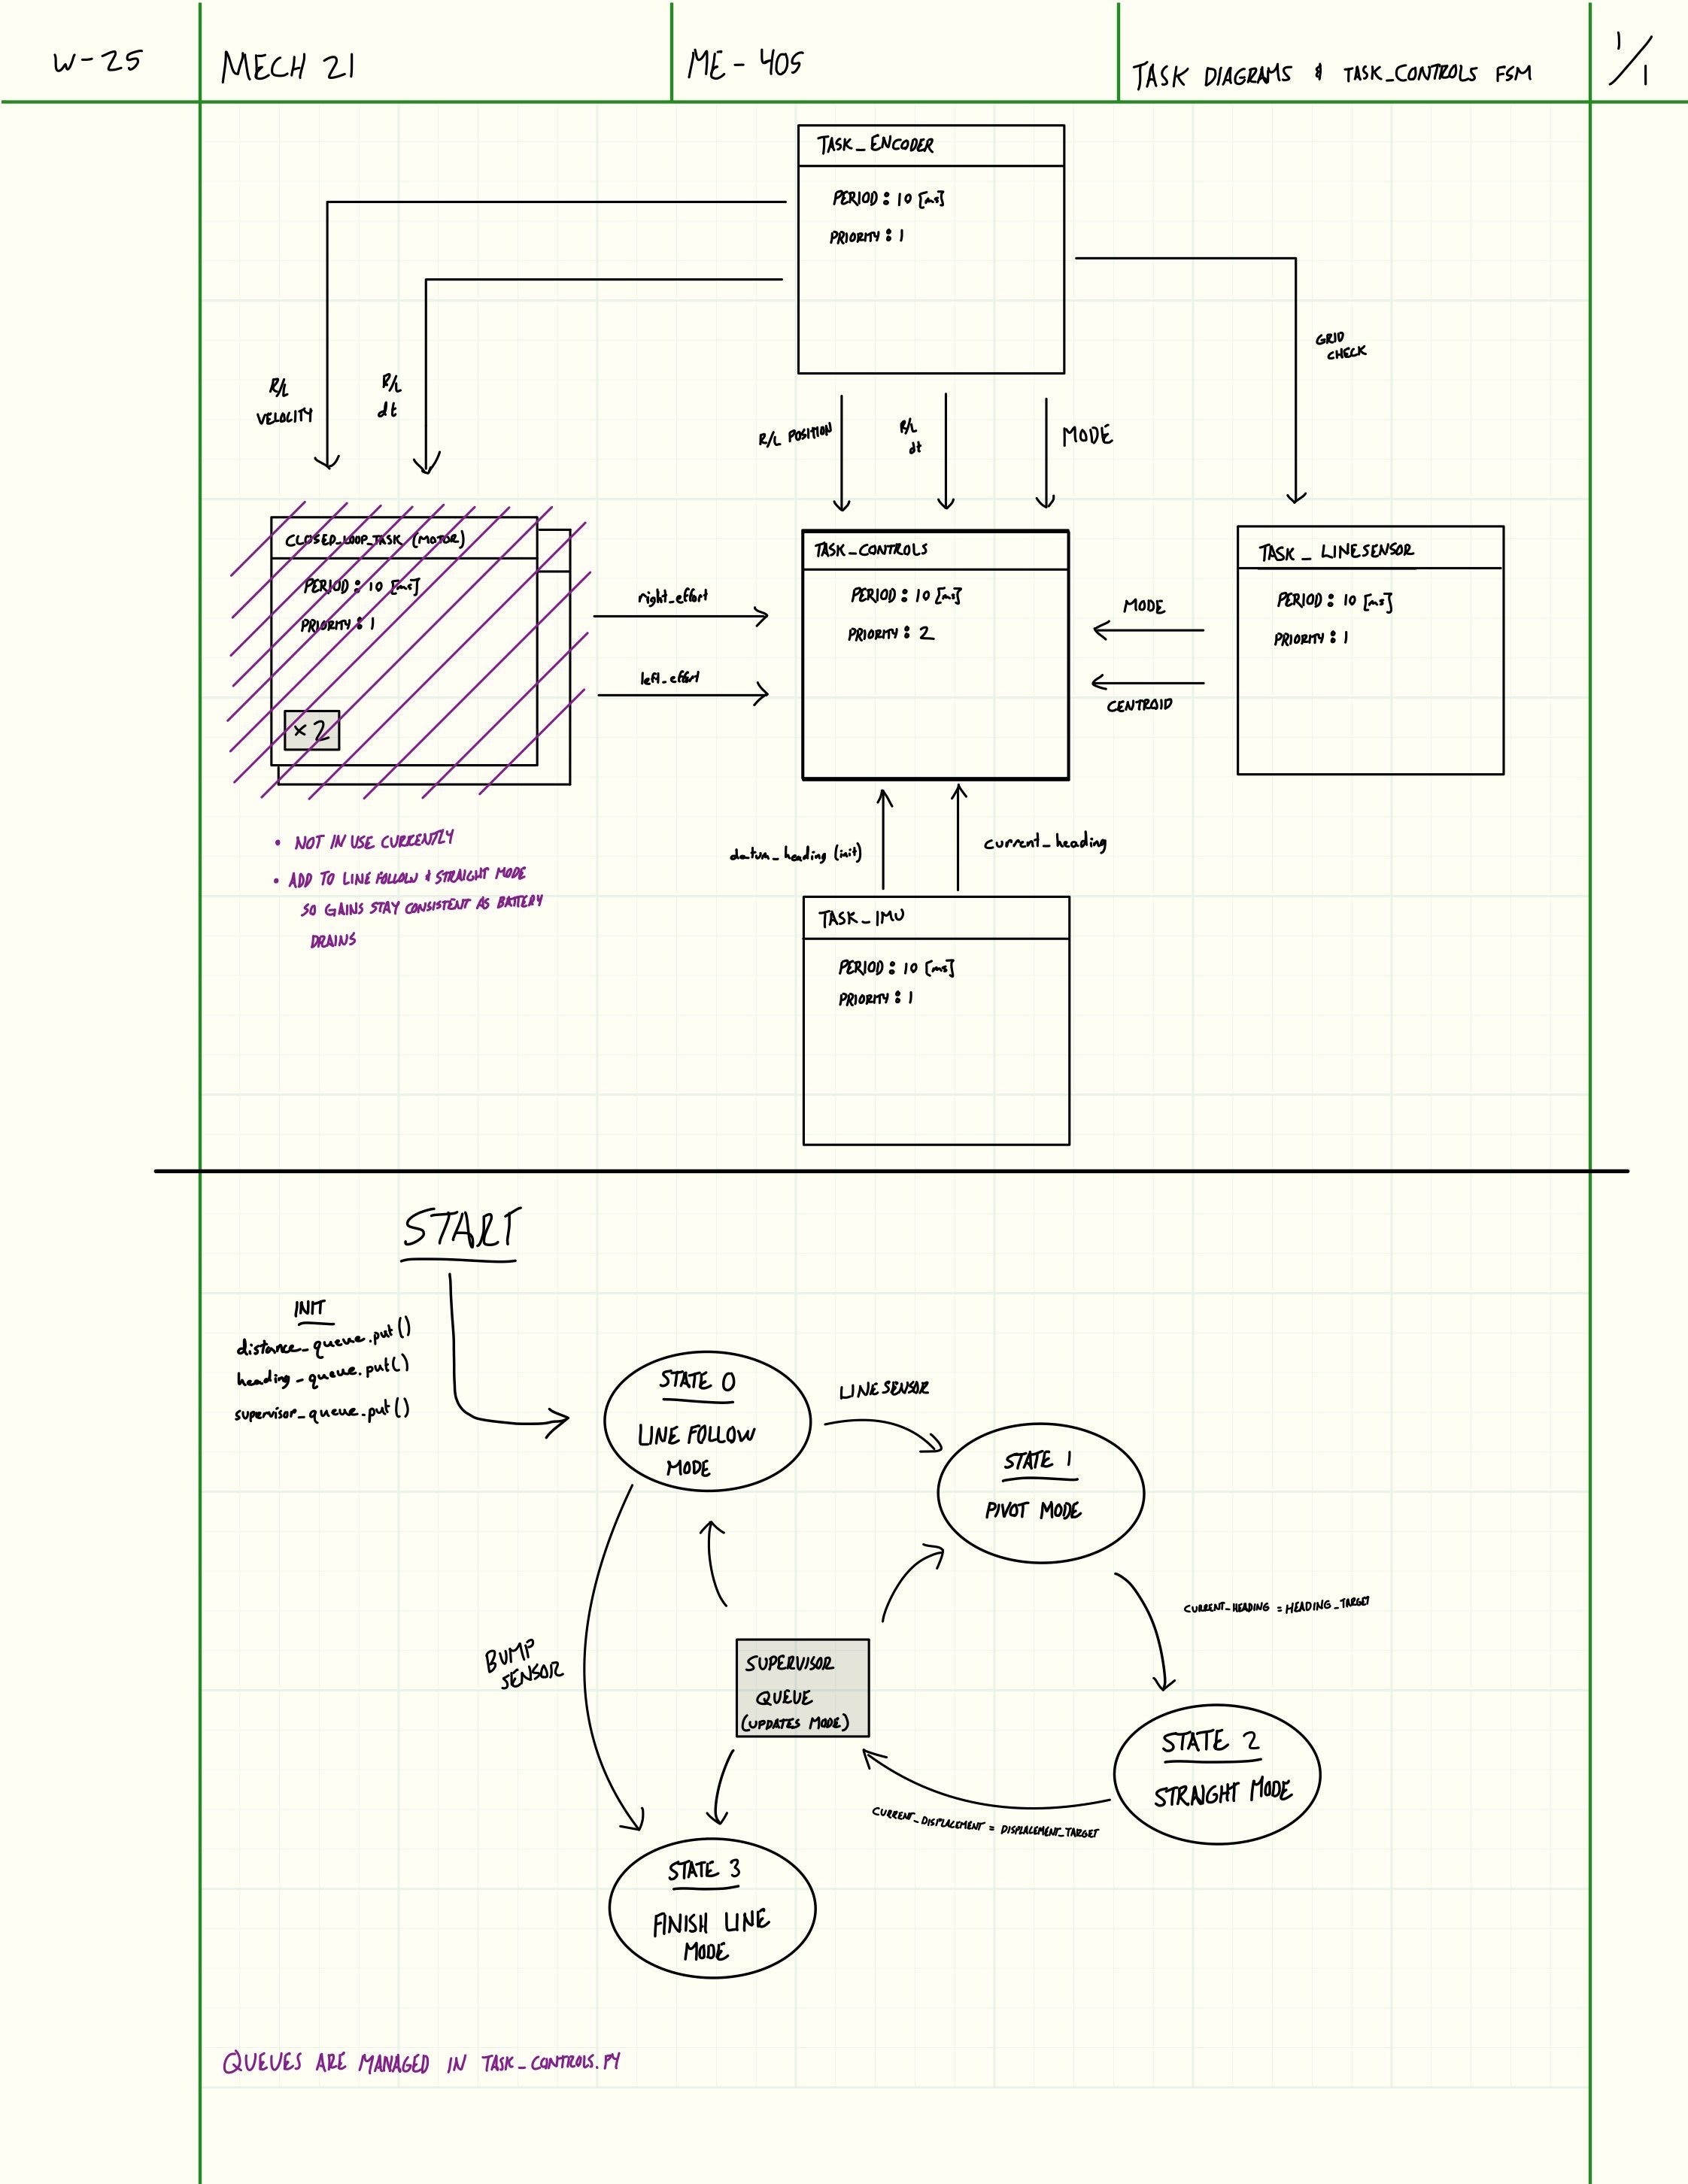 W-25
MECH 21
ME-405
TASK DIAGRAMS & TASK_CONTROLS FSM
1/1
TASK_ENCODER
PERIOD: 10 [ms]
PRIORITY: 1
R/L
VELOCITY
R/L
dt
R/L POSITION
R/L
dt
MODE
GRID
CHECK
CLOSED_LOOP_TASK (MOTOR)
PERIOD: 10 [ms]
PRIORITY: 1
×2
right_effort
left_effort
TASK_CONTROLS
PERIOD: 10 [ms]
PRIORITY: 2
MODE
CENTROID
TASK_LINESENSOR
PERIOD: 10 [ms]
PRIORITY: 1
• NOT IN USE CURRENTLY
• ADD TO LINE FOLLOW & STRAIGHT MODE
SO GAINS STAY CONSISTENT AS BATTERY
DRAINS
datum_heading (init)
current_heading
TASK_IMU
PERIOD: 10 [ms]
PRIORITY: 1
START
INIT
distance_queue.put()
heading_queue.put()
supervisor_queue.put()
STATE 0
LINE FOLLOW
MODE
LINE SENSOR
STATE 1
PIVOT MODE
CURRENT_HEADING = HEADING_TARGET
BUMP
SENSOR
SUPERVISOR
QUEUE
(UPDATES MODE)
STATE 2
STRAIGHT MODE
CURRENT_DISPLACEMENT = DISPLACEMENT_TARGET
STATE 3
FINISH LINE
MODE
QUEUES ARE MANAGED IN TASK_CONTROLS.PY